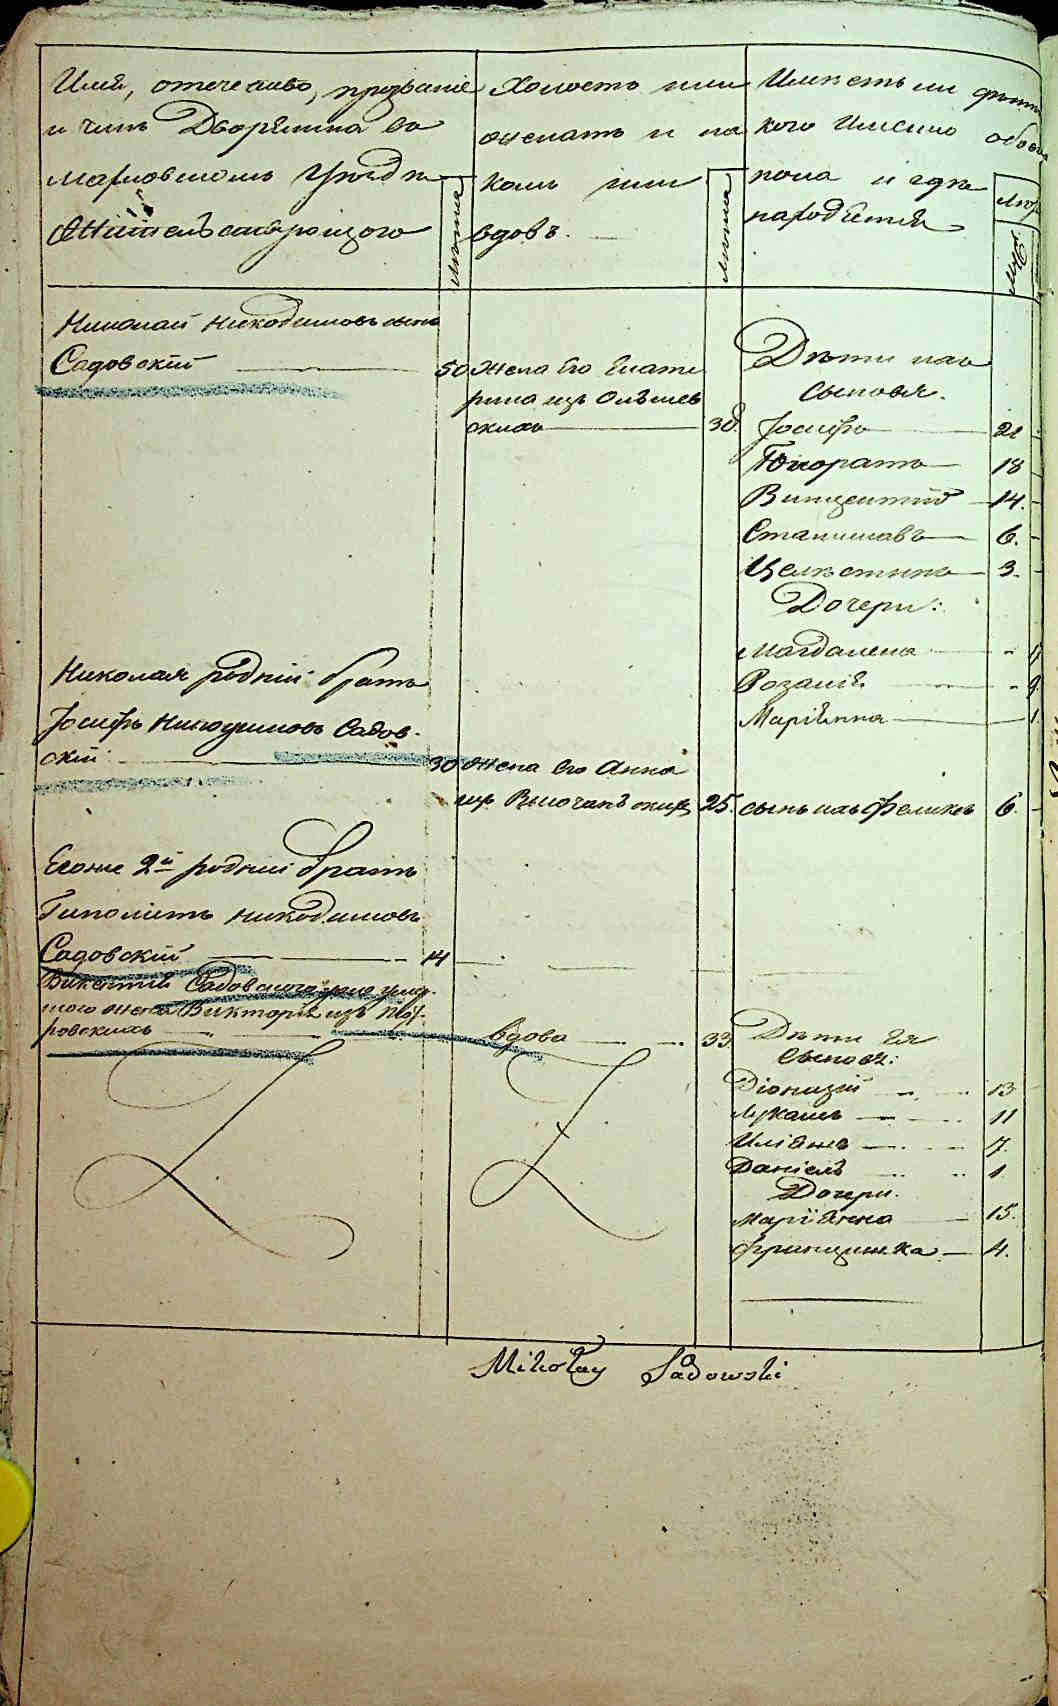 Имя, отечество, прозвание
и чинъ Дворянина въ
Махновскомъ Уездѣ
Жительствующого
Лѣта
Холостъ или
женатъ и на
комъ или
вдовъ.
Лѣта
Имѣетъ ли дѣтей
кого Имянно обоего
пола и гдѣ
находятся
Николай Никодимовъ сынъ
Садовскій 50
Жена Его Екате
рина изъ Ольшев
скихъ 38
Дѣти ихъ
Сыновья.
Іосифъ 21
Гоноратъ 18
Викцентій 14.
Станиславъ 6.
Целестинъ 3.
Дочери:
Магдалена
Розалія
Маріянна 1.
Николая родній братъ
Іосифъ Никодимовъ Садов-
скій 30
Жена Его Анна
изъ 25.
сынъ ихъ Феликсъ 6.
Егоже 2й родній братъ
Гиполитъ Никодимовъ
Садовскій 14
Садовского уже умер-
шого жена Викторія изъ
ровскихъ
вдова 33.
Дѣти Ея
Сыновя:
Діонизій 13
Лукашъ 11
Иліянъ 7.
Даніелъ 1
Дочери.
Маріянна 15.
Францишка 4.
Mikołay Sadowski